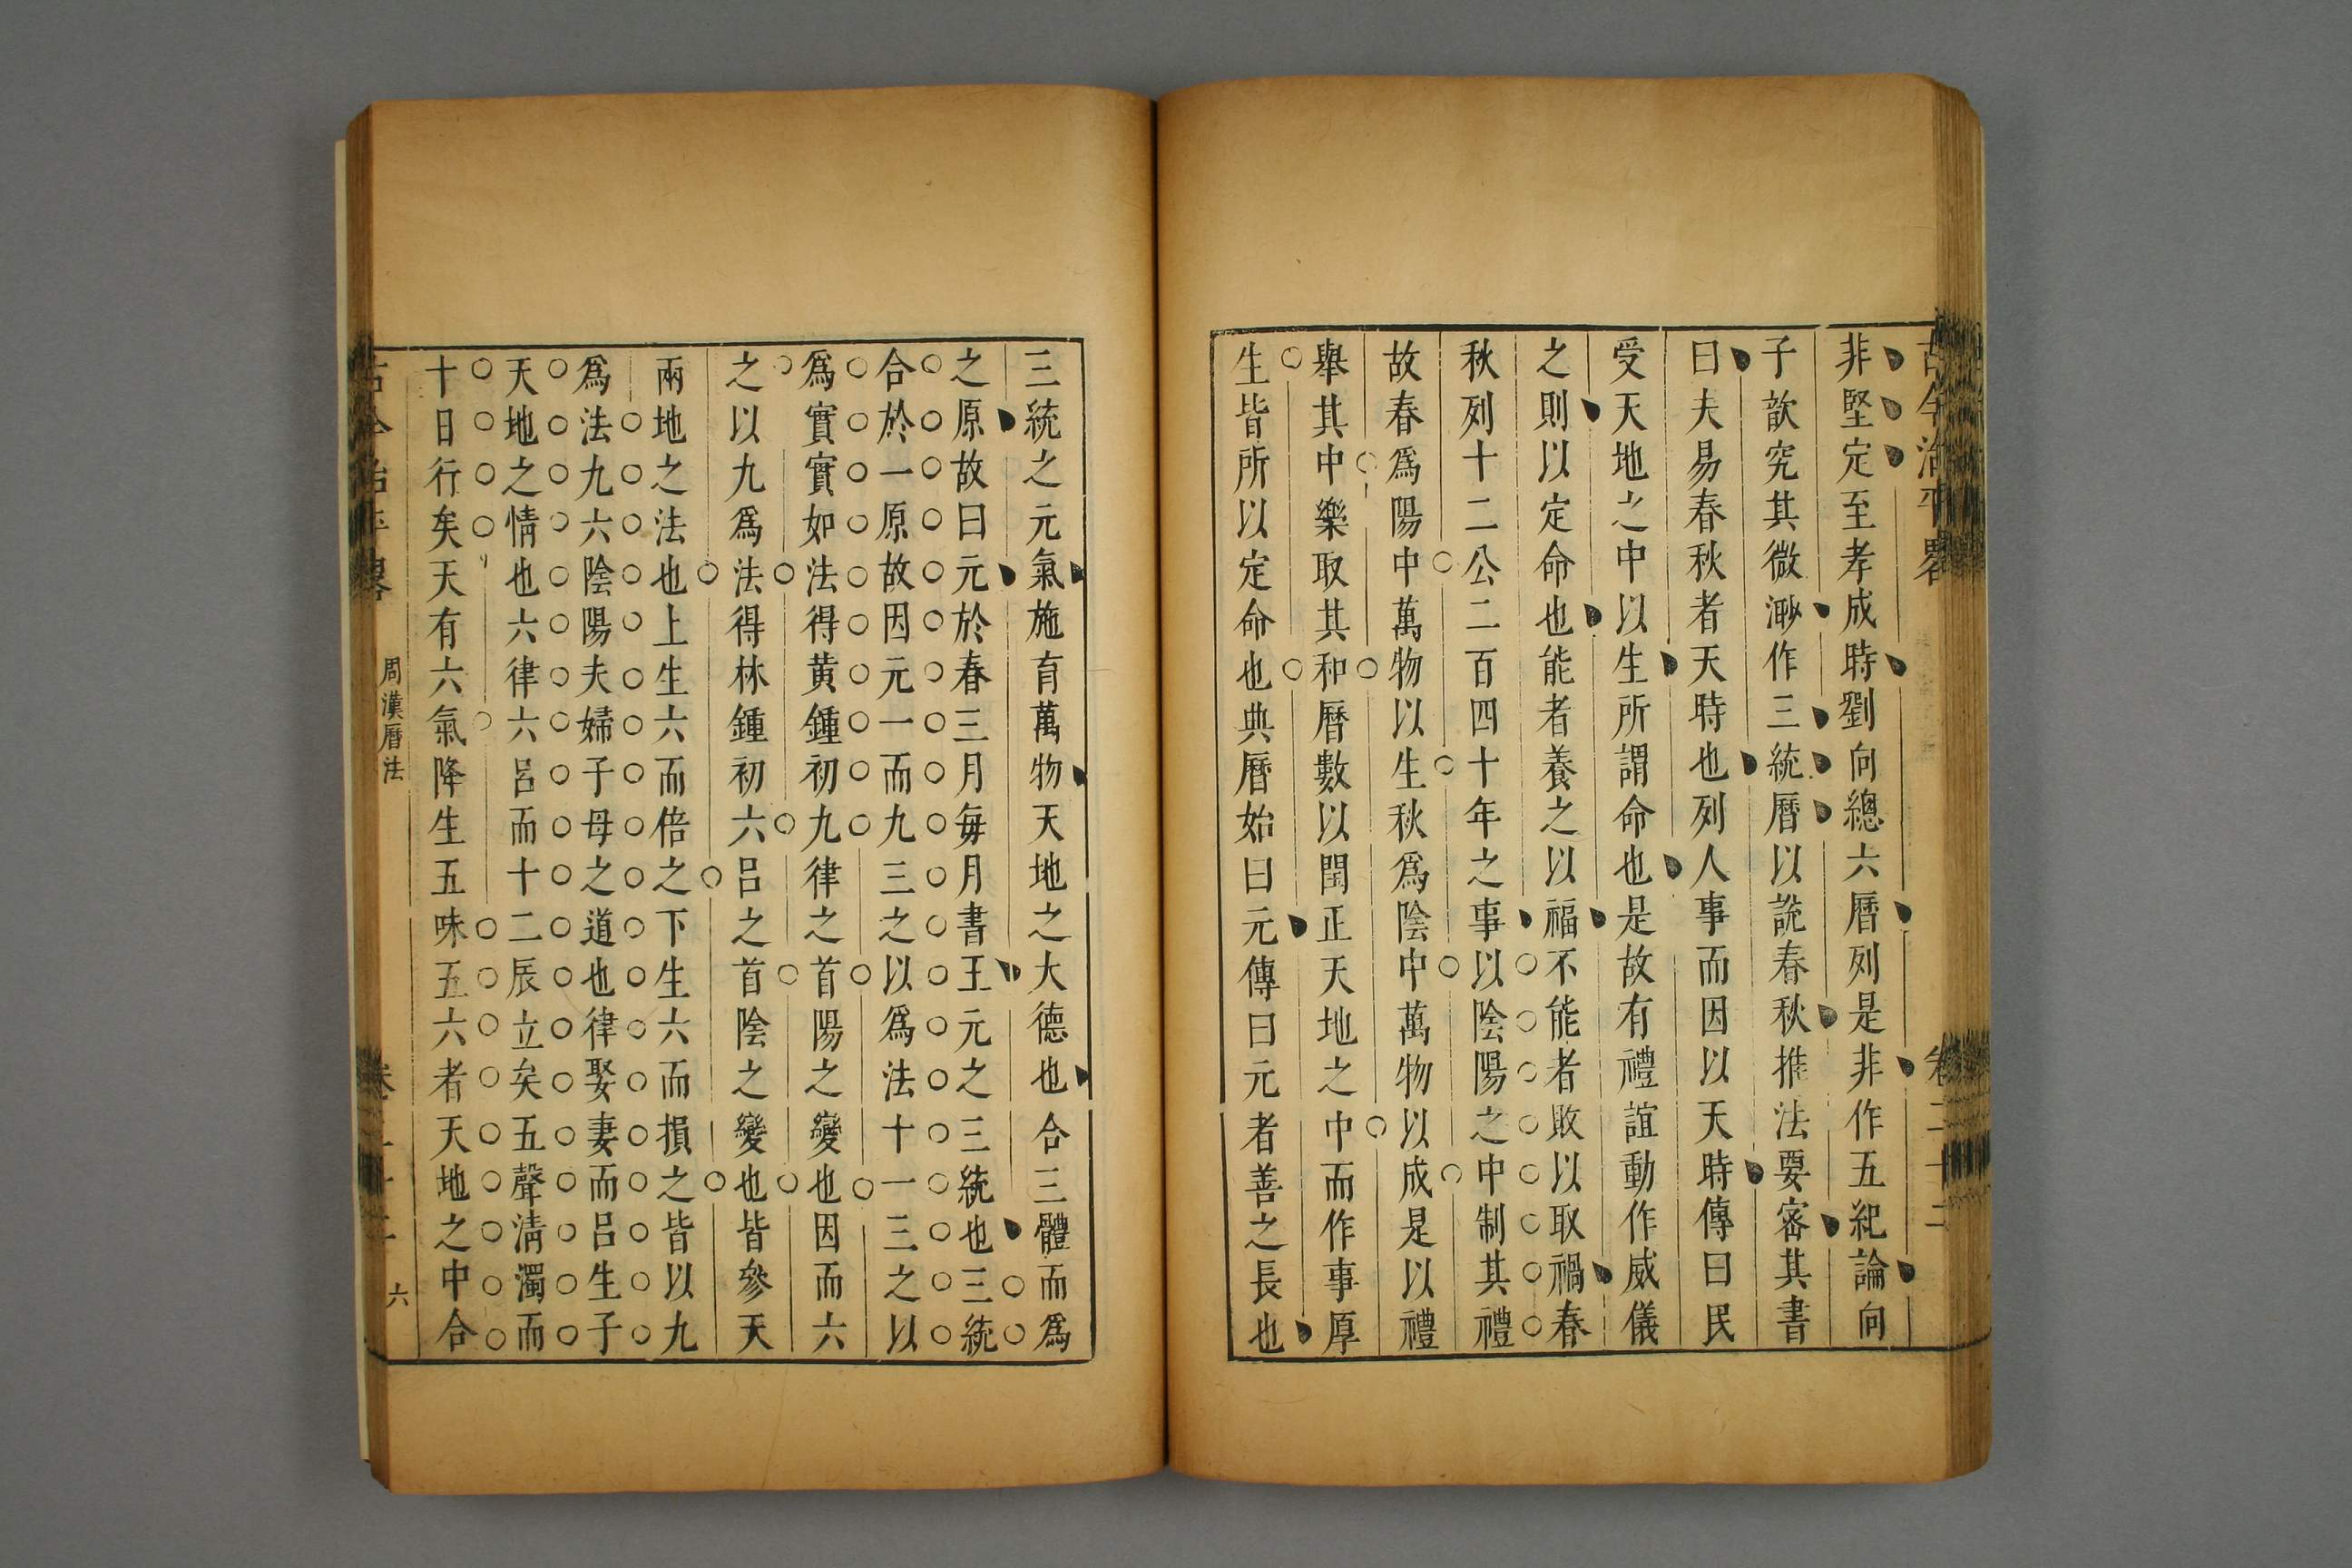 古今治平畧 卷二十二
非堅定至孝成時劉向總六曆列是非作五紀論向
子歆究其微渺作三統曆以說春秋推法要密其書
曰夫易春秋者天時也列人事而因以天時傳曰民
受天地之中以生所謂命也是故有禮誼動作威儀
之則以定命也能者養之以福不能者敗以取禍春
秋列十二公二百四十年之事以陰陽之中制其禮
故春爲陽中萬物以生秋爲陰中萬物以成是以禮
舉其中樂取其和曆數以閏正天地之中而作事厚
生皆所以定命也典曆始曰元傳曰元者善之長也
三統之元氣施育萬物天地之大德也合三體而爲
之原故曰元於春三月每月書王元之三統也三統
合於一原故因元一而九三之以爲法十一三之以
爲實實如法得黃鍾初九律之首陽之變也因而六
之以九爲法得林鍾初六呂之首陰之變也皆參天
兩地之法也上生六而倍之下生六而損之皆以九
爲法九六陰陽夫婦子母之道也律娶妻而呂生子
天地之情也六律六呂而十二辰立矣五聲淸濁而
十日行矣天有六氣降生五味五六者天地之中合
古今治平畧 周漢曆法 卷二十二 六